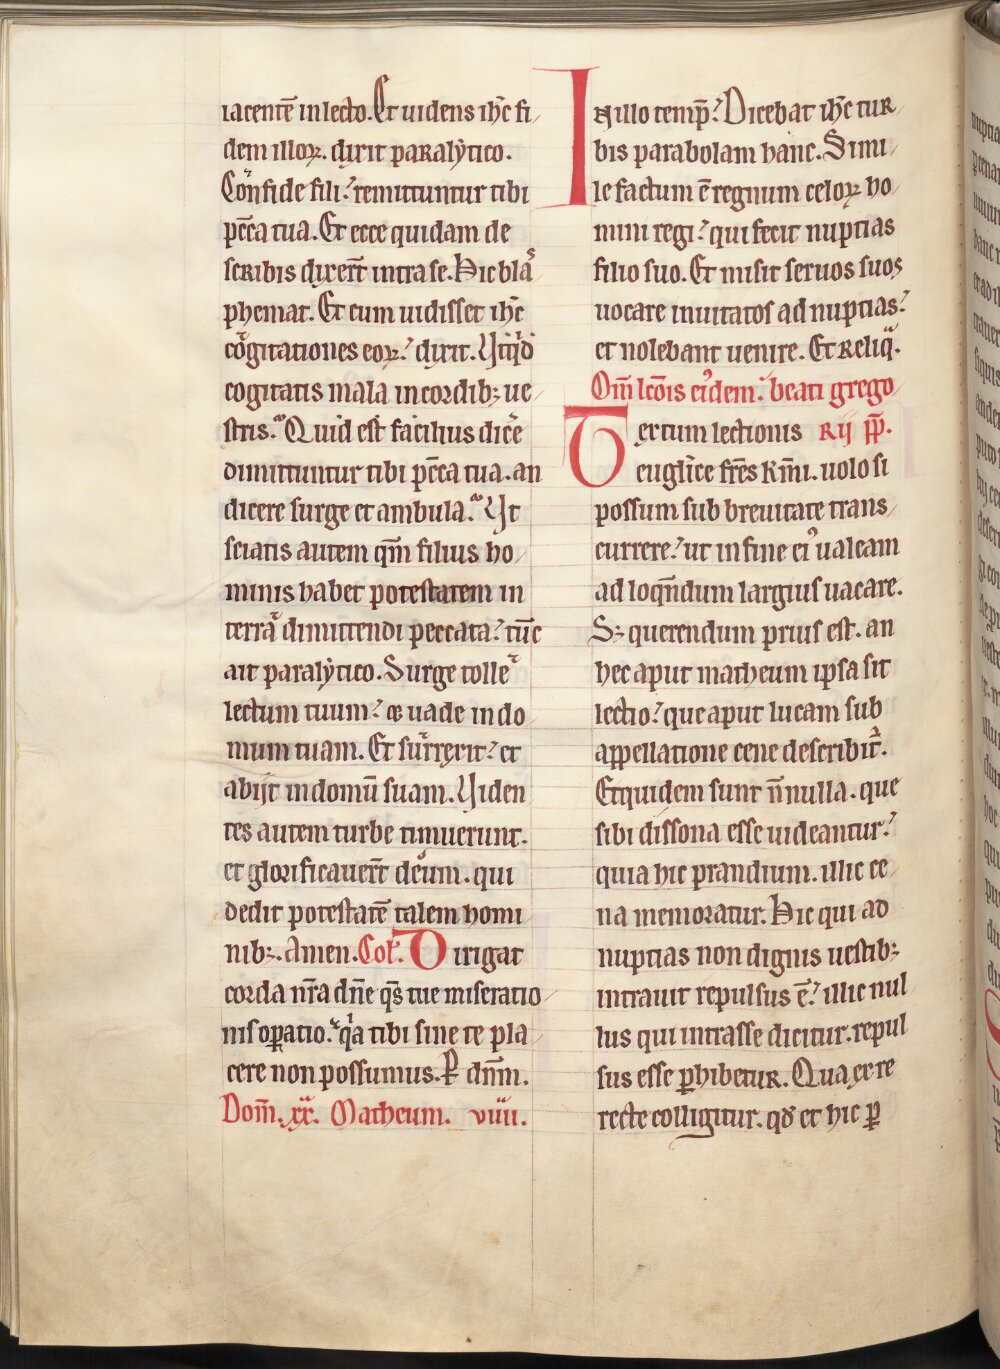 iacentē in lecto. Et uidens ih̄c fi
dem illoꝝ. dixit paralẏtico.
Confide fili? remittuntur tibi
pēcca tua. Et ecce quidam de
scribis dixer̄t intra se. Hic blas
phemat. Et cum uidisset ih̄c
cogitationes eoꝝ? dixit. Vtqͥd
cogitatis mala in cordibꝫ ue
stris. Quid est facilius dic̄e
dimittuntur tibi pēcca tua. an
dicere surge et ambula. Vt
sciatis autem qm̄ filius ho
minis habet potestatem in
terra dimittendi peccata? tūc
ait paralẏtico. Surge tolle
lectum tuum? et uade in do
mum tuam. Et surrexit? et
abijt in domū suam. Viden
tes autem turbe timuerunt.
et glorificauer̄t deum. qui
dedit potestatē talem homi
nibꝫ. Amen. Coł. Dirigat
corda nr̄a dn̄e qs̄ tue miseratio
nis oꝑatio. qͥa tibi sine te pla
cere non possumus. P̱ dn̄m.
Dom̄. xx. Matheum. viiii.
In illo temp̄? Dicebat ih̄c tur
bis parabolam hanc. Simi
le factum ē regnum celoꝝ ho
mini regi? qui fecit nuptias
filio suo. Et misit seruos suos
uocare inuitatos ad nuptias?
et nolebant uenire. Et reliqͣ.
Om̄ lc̄ois eiꝰdem. beati grego
Tertum lectionis rij pp̄.
eugl̄ice fr̄es km̄i. uolo si
possum sub breuitate trans
currere? ut in fine eiꝰ ualeam
ad loqn̄dum largius uacare.
Sꝫ querendum prius est. an
hec aput matheum ipsa sit
lectio? que aput lucam sub
appellatione cene describit᷑.
Et quidem sunt n̄nulla. que
sibi dissona esse uideantur?
quia hic prandium. illic ce
na memoratur. Hic qui ad
nuptias non dignis uestibꝫ
intrauit repulsus ē? illic nul
lus qui intrasse dicitur. repul
sus esse ꝑhibetur. Qua ex re
recte colligitur. qđ et hic ꝑ